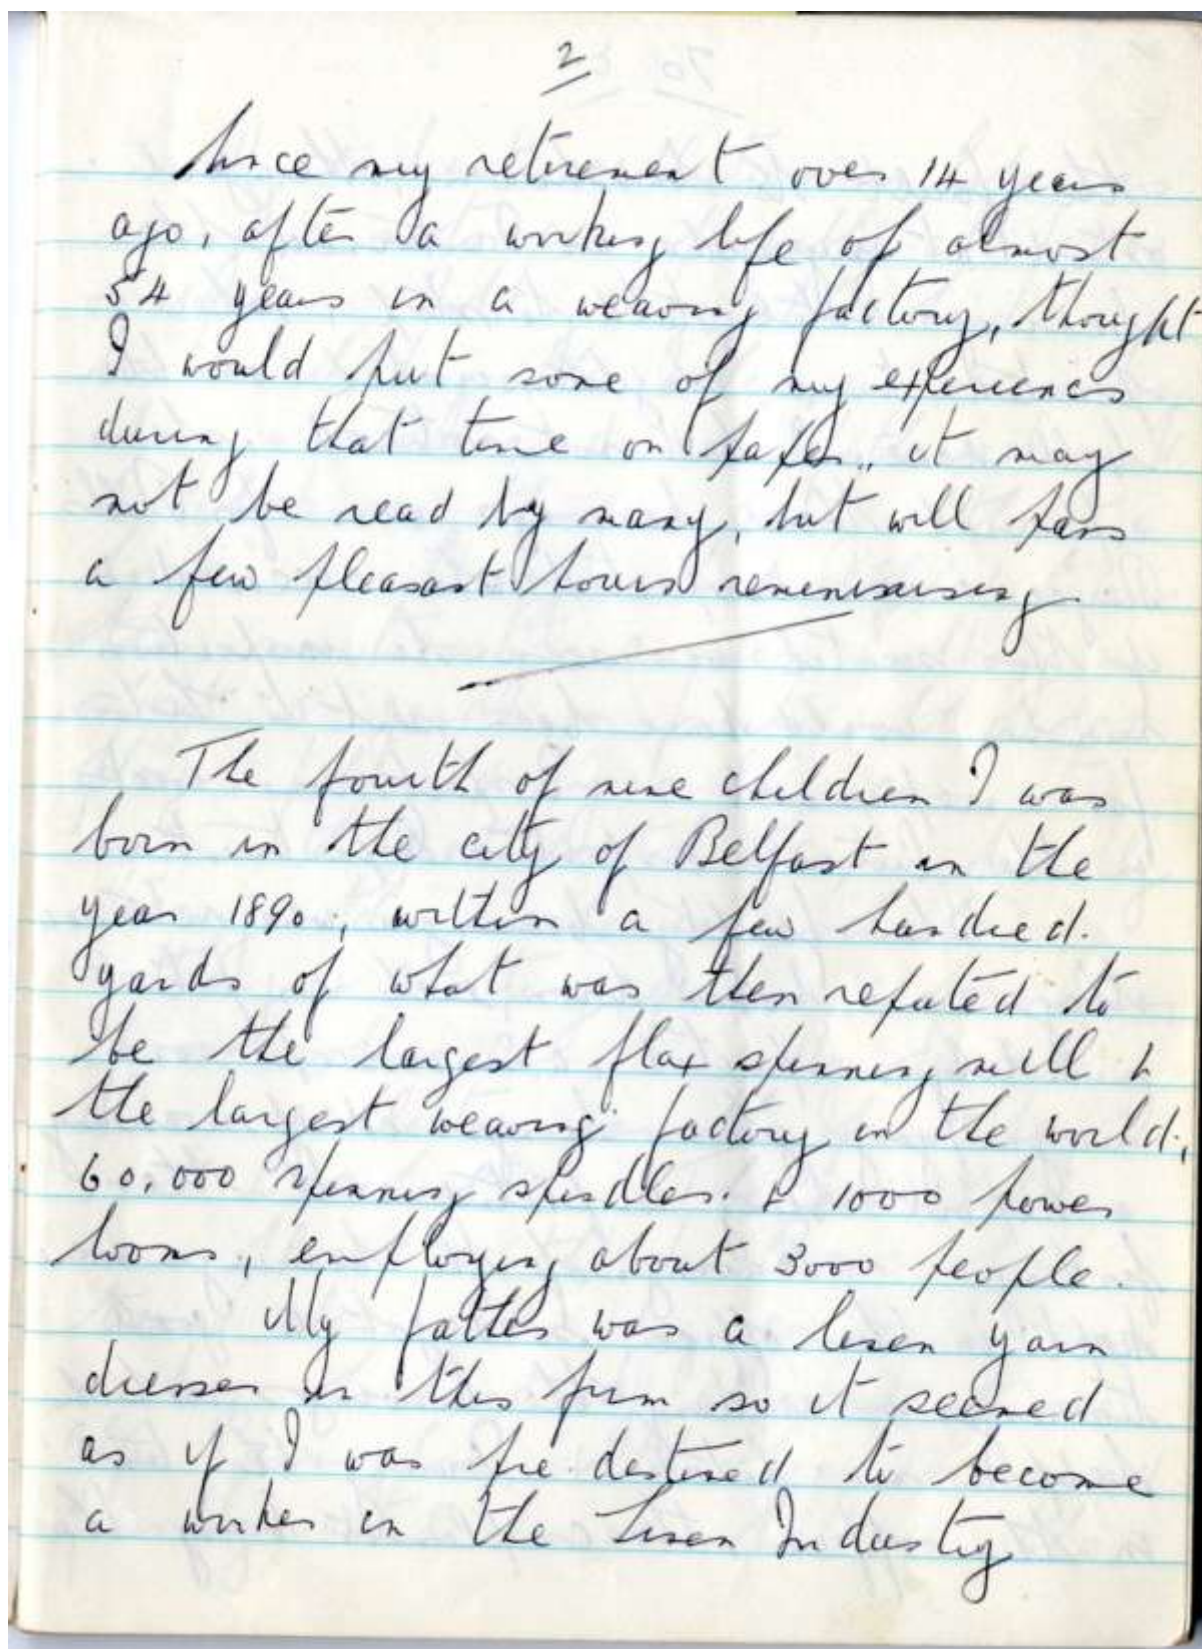 2
Since my retirement over 14 years
ago, after a working life of almost
54 years in a weaving factory, thought
I would put some of my experiences
during that time on paper, it may
not be read by many, but will pass
a few pleasant hours reminiscing.
The fourth of nine children I was
born in the city of Belfast in the
year 1890, within a few hundred
yards of what was then reputed to
be the largest flax spinning mill &
the largest weaving factory in the world,
60,000 spinning spindles & 1000 power
looms, employing about 3000 people.
My father was a linen yarn
dresser in this firm so it seemed
as if I was pre destined to become
a worker in the Linen Industry